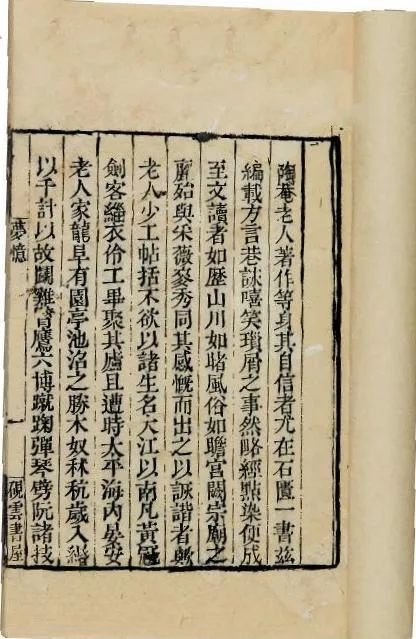 陶菴老人著作等身其自信者尤在石匱一書茲
編載方言巷詠嘻笑瑣屑之事然略經點染便成
至文讀者如歷山川如睹風俗如瞻宮闕宗廟之
麗殆與采薇麥秀同其感慨而出之以詼諧者歟
老人少工帖括不欲以諸生名大江以南凡黃冠
劍客緇衣伶工畢聚其廬且遭時太平海內晏安
老人家龍阜有園亭池沼之勝木奴秫秔歲入緡
以千計以故鬭雞臂鷹六博蹴踘彈琴劈阮諸技
夢憶
一
硯雲書屋